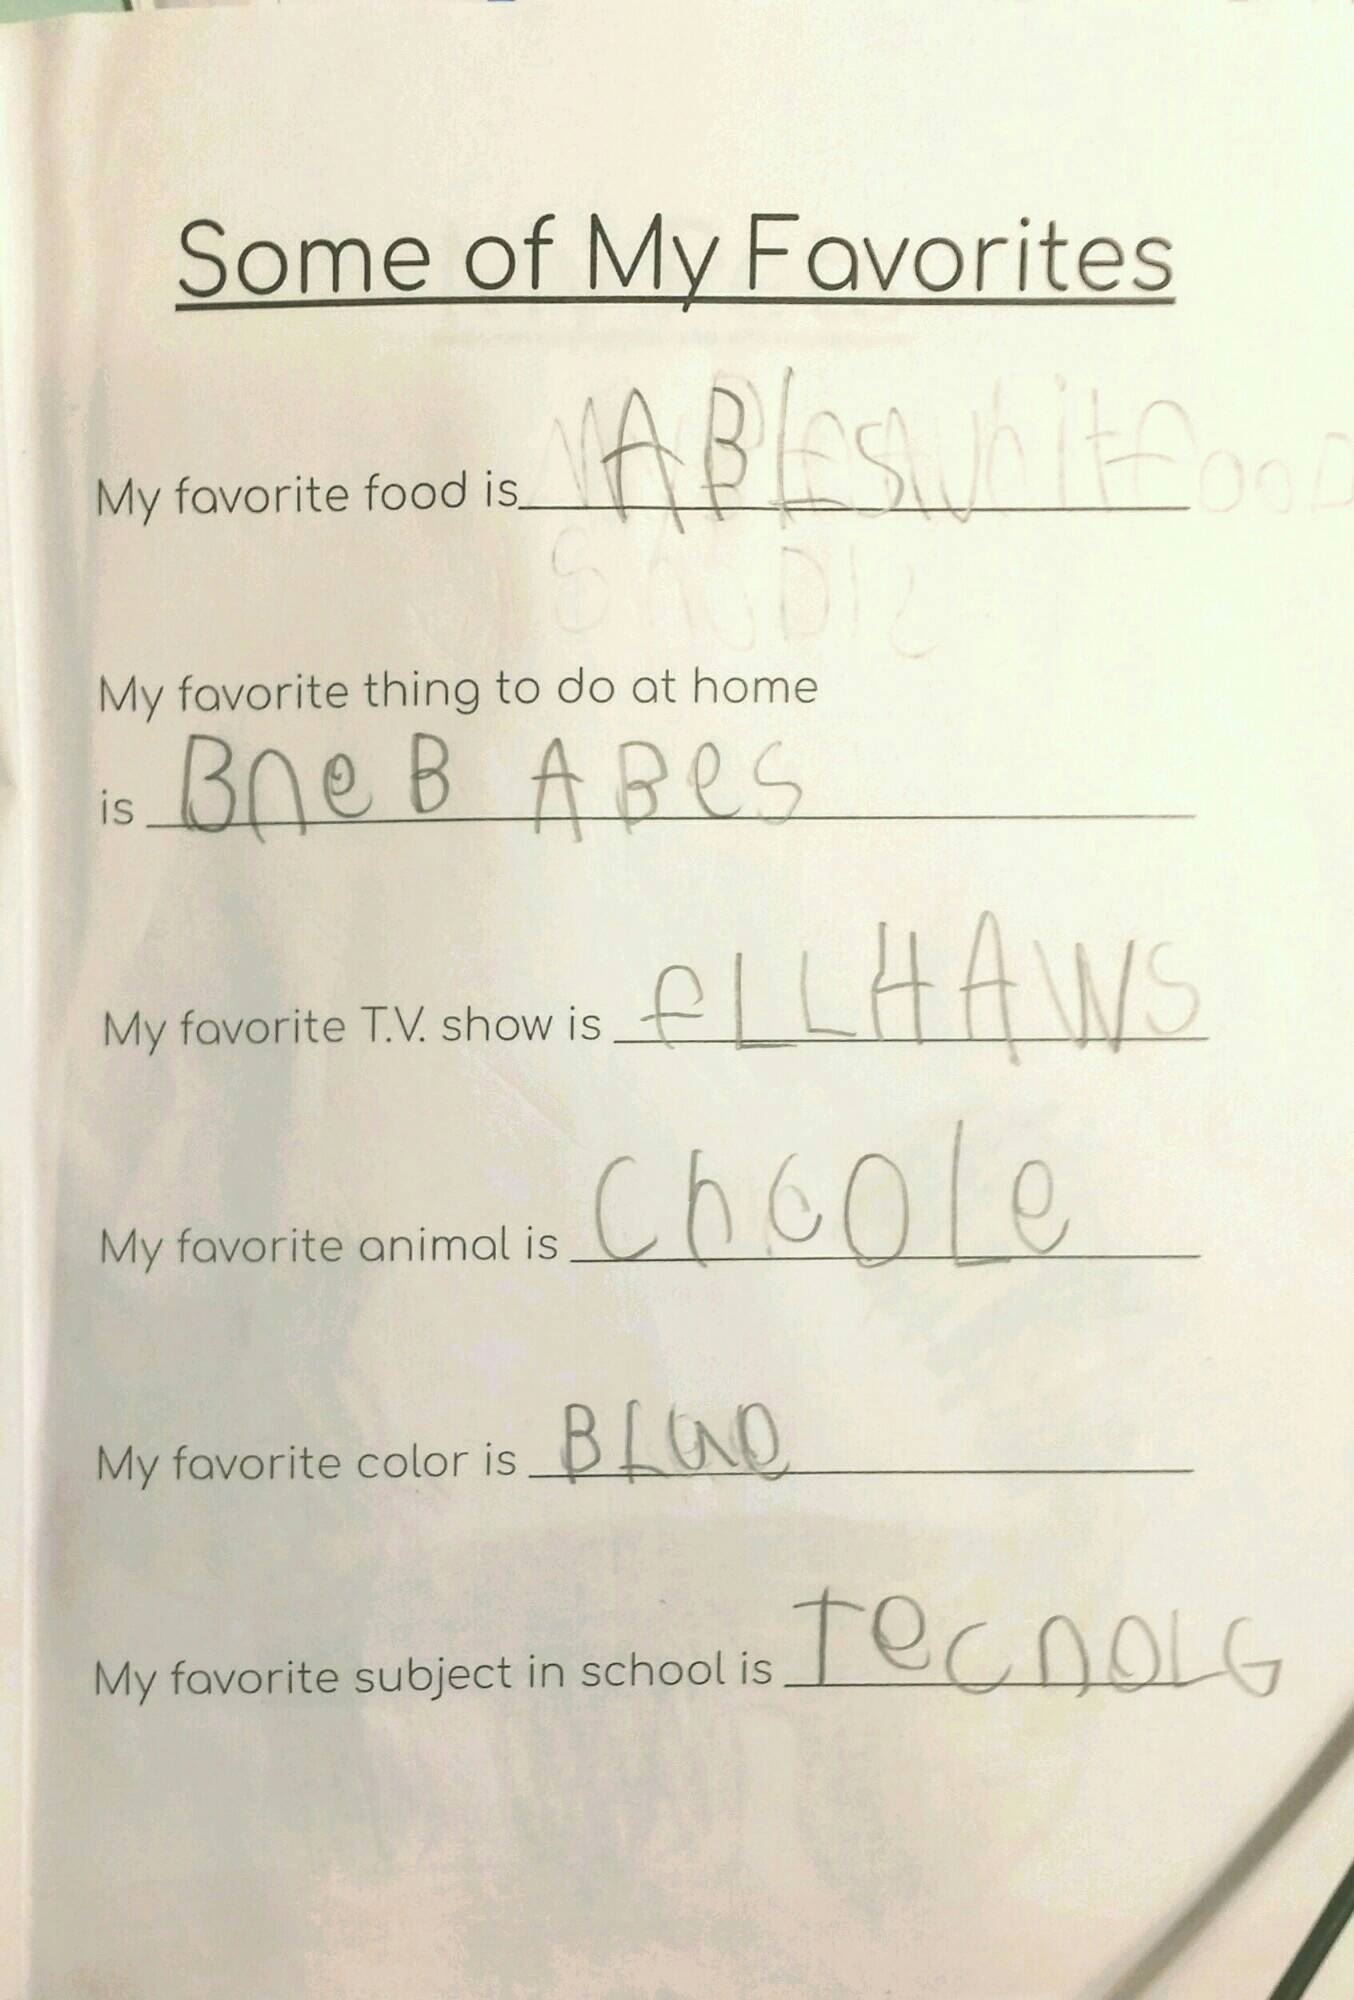 Some of My Favorites
My favorite food is ABLES
My favorite thing to do at home
is BneB ABes
My favorite T.V. show is eLLHAWS
My favorite animal is ChcOLe
My favorite color is BLue
My favorite subject in school is TecnOLG